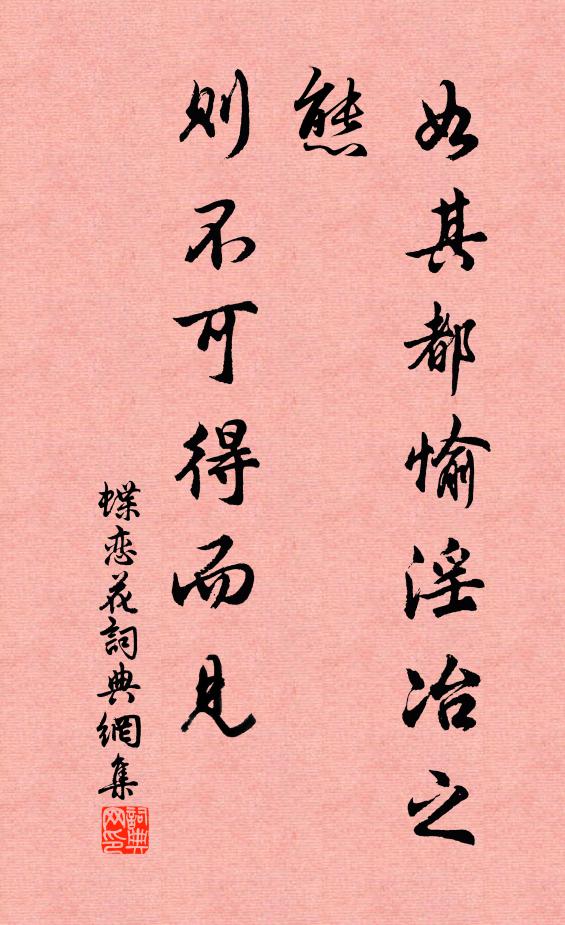 如其都愉淫冶之
態
則不可得而見
蝶恋花詞典網集
詞典
网印